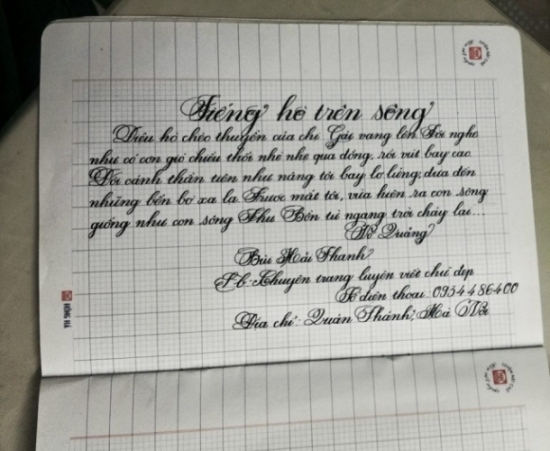 Tiếng hò trên sông
Điệu hò chèo thuyền của chị Gái vang lên. Tôi nghe
như có cơn gió chiều thổi nhè nhẹ qua đồng, rồi vút bay cao.
Đôi cánh thần tiên như nâng tôi bay lơ lửng, đưa đến
những bến bờ xa lạ. Trước mắt tôi, vừa hiện ra con sông
giống như con sông Thu Bồn từ ngang trời chảy lại...
Võ Quảng
Bùi Hải Thanh
Chuyên trang luyện viết chữ đẹp
Số điện thoại: 0954486400
Địa chỉ: Quán Thánh, Hà Nội
HỒNG HÀ